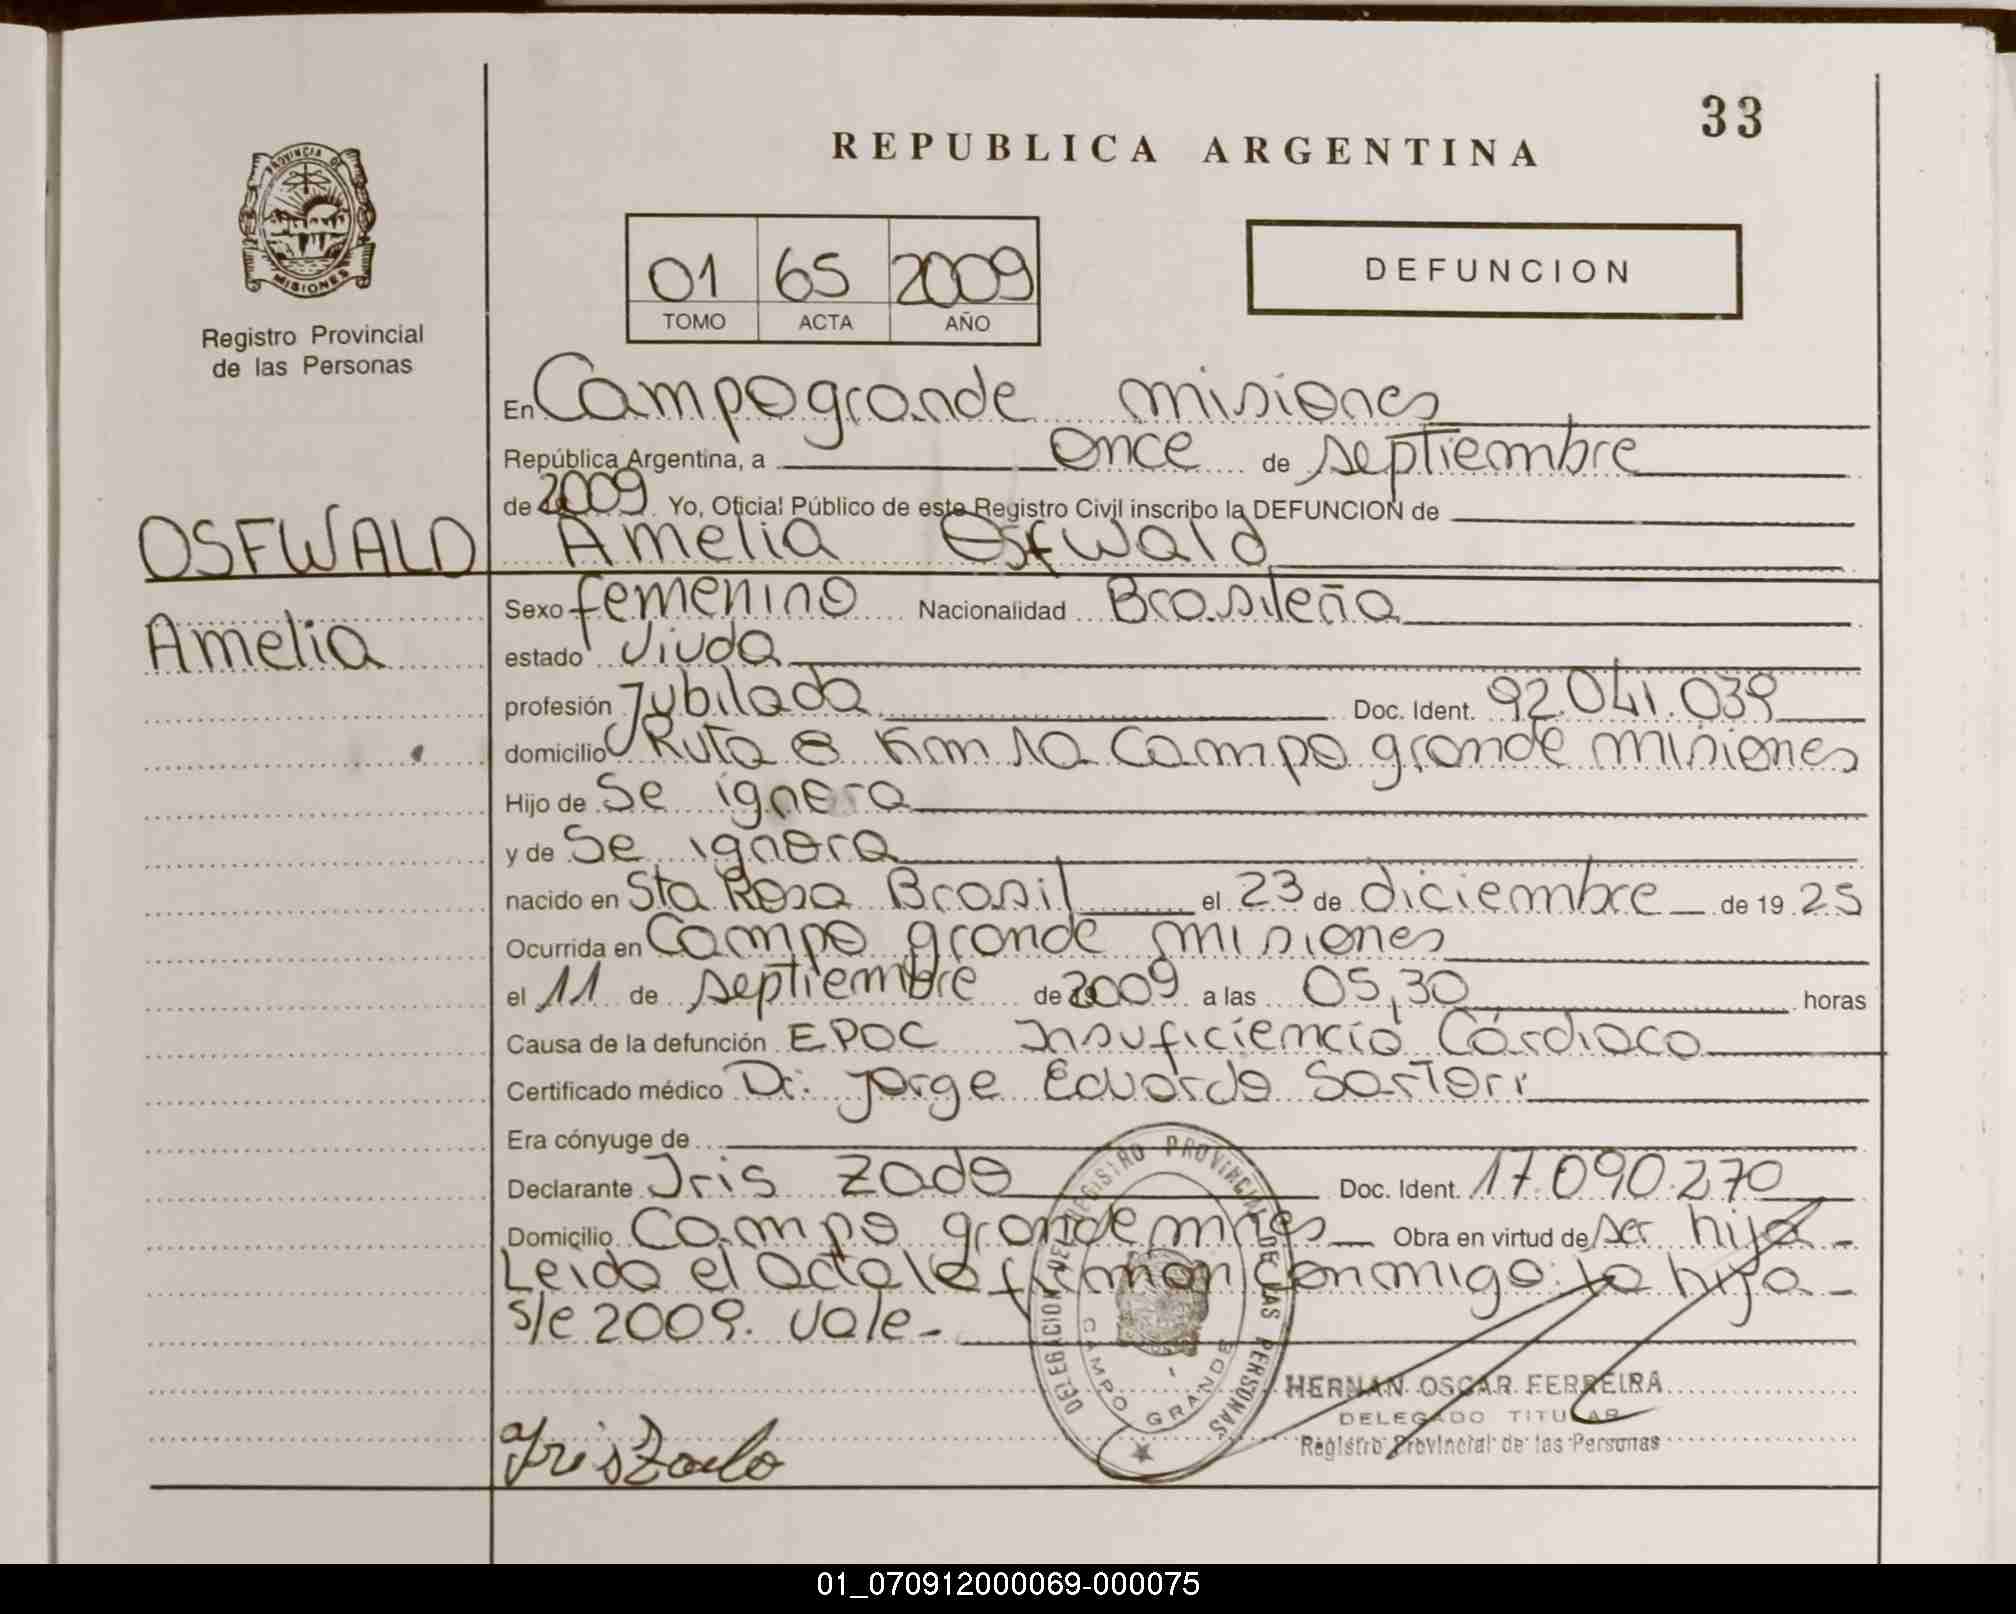 33
REPUBLICA ARGENTINA
PROVINCIA DE
MISIONES
Registro Provincial
de las Personas
01 65 2009
TOMO ACTA AÑO
DEFUNCION
En Campo grande misiones
República Argentina, a once de septiembre
de 2009 Yo, Oficial Público de este Registro Civil inscribo la DEFUNCION de
OSFWALD Amelia Osfwald
Amelia
Sexo femenino Nacionalidad Brasileña
estado Viuda
profesión Jubilada Doc. Ident. 92.041.039
domicilio Ruta 8 Km 10 Campo grande misiones
Hijo de Se ignora
y de Se ignora
nacido en Sta Rosa Brasil el 23 de diciembre de 19 25
Ocurrida en Campo grande misiones
el 11 de septiembre de 2009 a las 05,30 horas
Causa de la defunción EPOC Insuficiencia Cárdiaca
Certificado médico Dr. Jorge Eduardo Sartori
Era cónyuge de
Declarante Iris Zado Doc. Ident. 17.090.270
Domicilio Campo grande mnes Obra en virtud de ser hija
Leida el acta la firman conmigo: la hija
s/e 2009. vale
DELEGACION DEL REGISTRO PROVINCIAL DE LAS PERSONAS
CAMPO GRANDE
HERNAN OSCAR FERREIRA
DELEGADO TITULAR
Registro Provincial de las Personas
Iris Zado
01_070912000069-000075